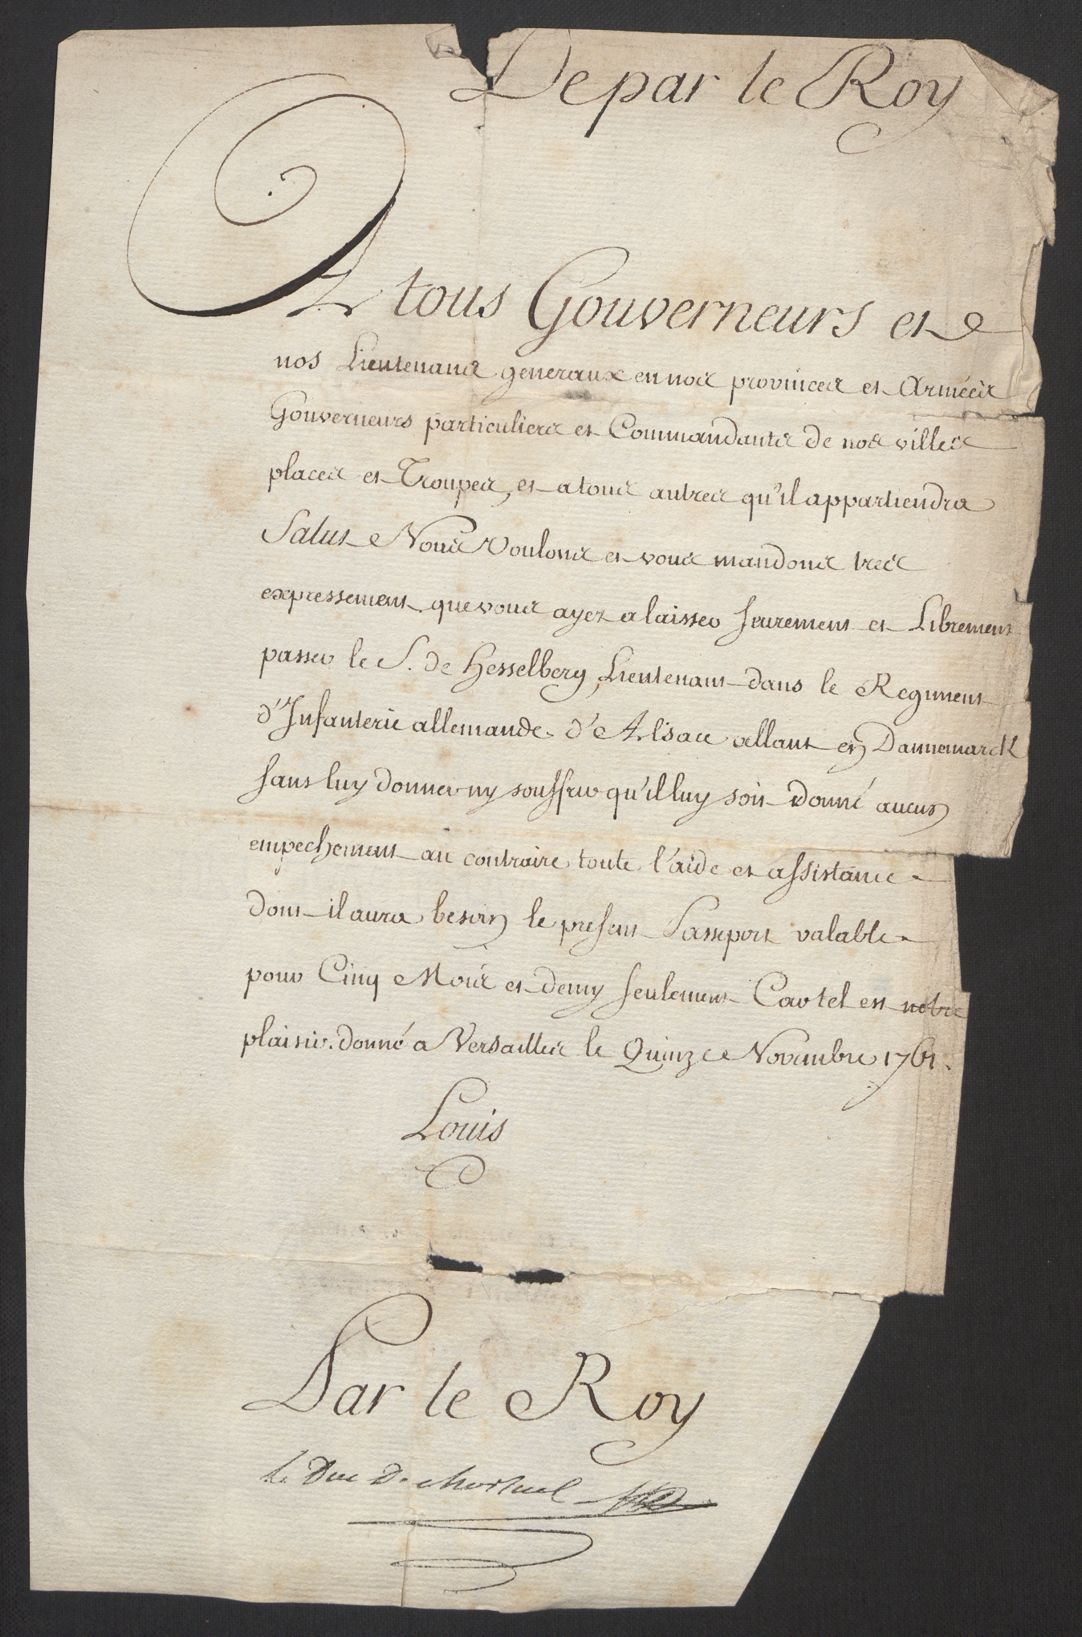 De par le Roy
A tous Gouverneurs et
nos Lieutenans generaux en nos provinces et Armées
Gouverneurs particuliers et Commandants de nos villes
places et Troupes, et a tous autres qu'il appartiendra
Salut Nous Voulons et vous mandons tres
expressement que vous ayez a laisser seurement et Librement
passer le S. de Hesselberg, Lieutenant dans le Regiment
d'Infanterie allemande d'Alsace allant en Dannemarck
sans luy donner ny souffrir qu'il luy soit donné aucun
empechement au contraire toute l'aide et assistance
dont il aura besoin le present Passeport valable
pour Cinq Mois et demy seulement Car tel est notre
plaisir. donné a Versailles le Quinze Novembre 1761.
Louis
Par le Roy
le Duc De Choiseul